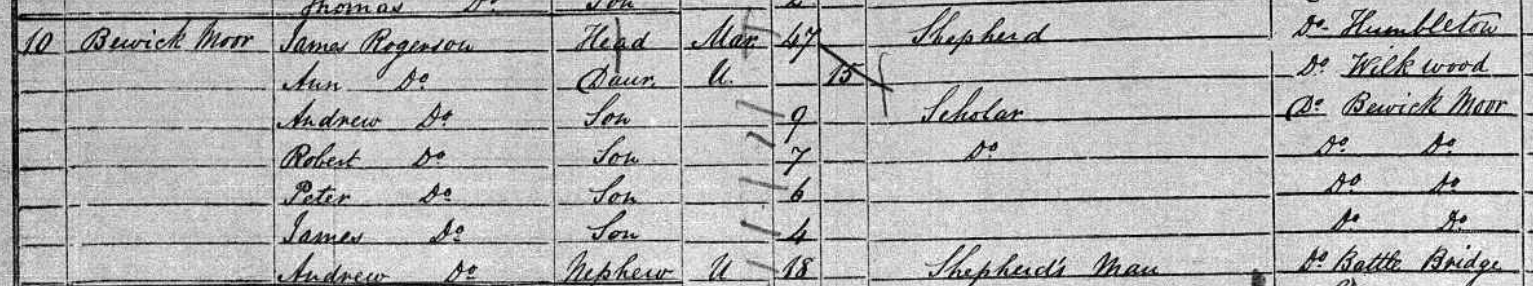 Thomas Do Son 2
10 Bewick Moor James Rogerson Head Mar 47 Shepherd Do Humbleton
Ann Do Daur. U. 15 Do Wilkwood
Andrew Do Son 9 Scholar Do Bewick Moor
Robert Do Son 7 Do Do Do
Peter Do Son 6 Do Do
James Do Son 4 Do Do
Andrew Do Nephew U 18 Shepherd's Man Do Battle Bridge